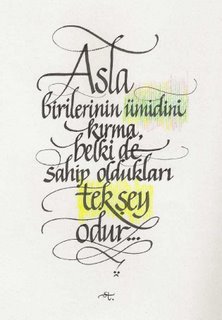 Asla
birilerinin ümidini
kırma,
belki de
sahip oldukları
tek şey
odur...